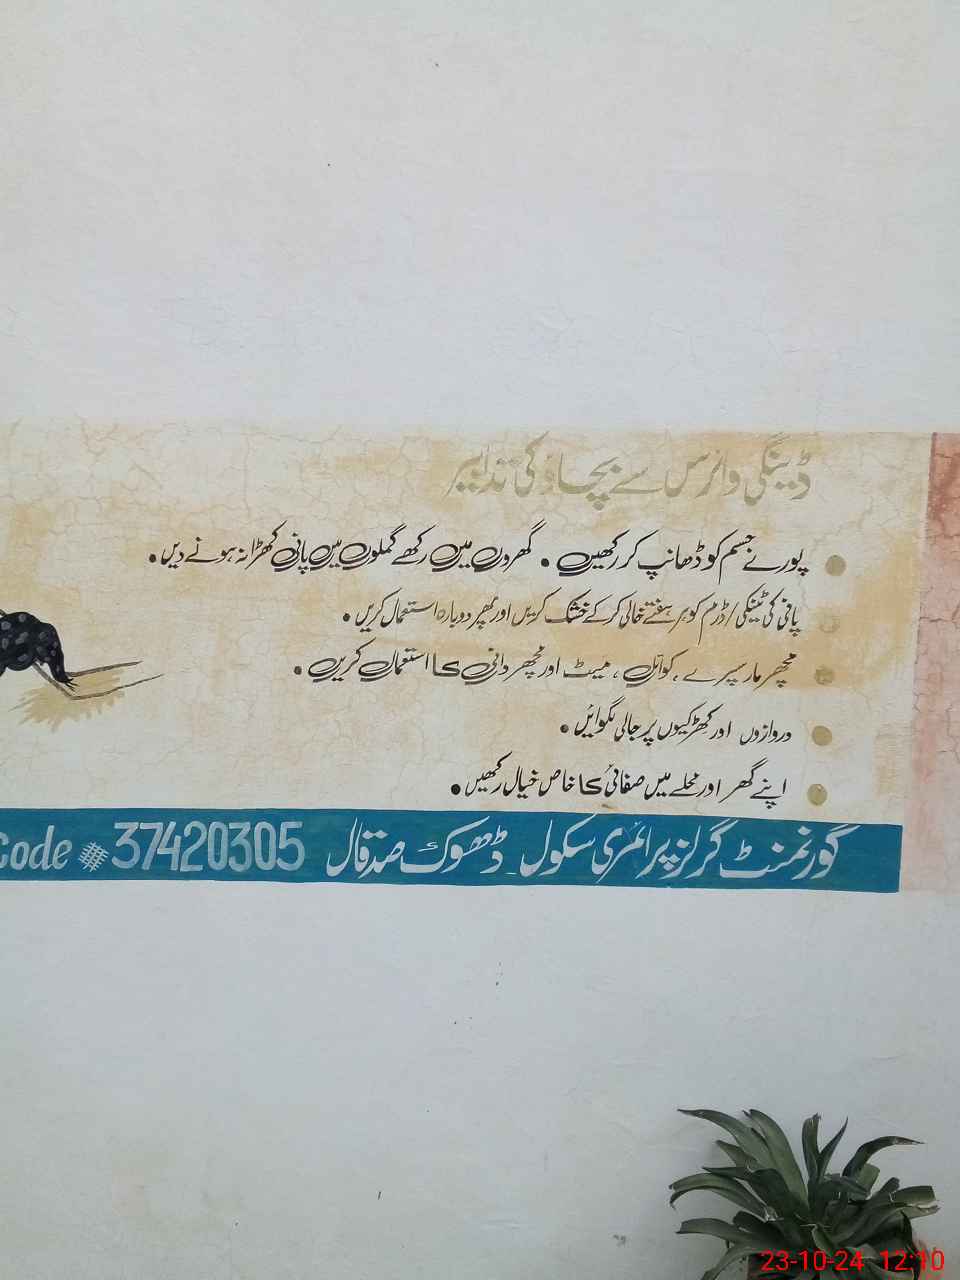 ڈینگی وائرس سے بچاؤ کی تدابیر
پورے جسم کو ڈھانپ کر رکھیں • گھروں میں رکھے گملوں میں پانی کھڑا نہ ہونے دیں •
پانی کی ٹینکی/ڈرم کو ہر ہفتے خالی کر کے خشک کریں اور پھر دوبارہ استعمال کریں •
مچھر مار سپرے، کوائل، میٹ اور مچھر دانی کا استعمال کریں •
دروازوں اور کھڑکیوں پر جالی لگوائیں •
اپنے گھر اور محلے میں صفائی کا خاص خیال رکھیں •
گورنمنٹ گرلز پرائمری سکول ۔ ڈھوک صدقال Code # 37420305
23-10-24 12:10